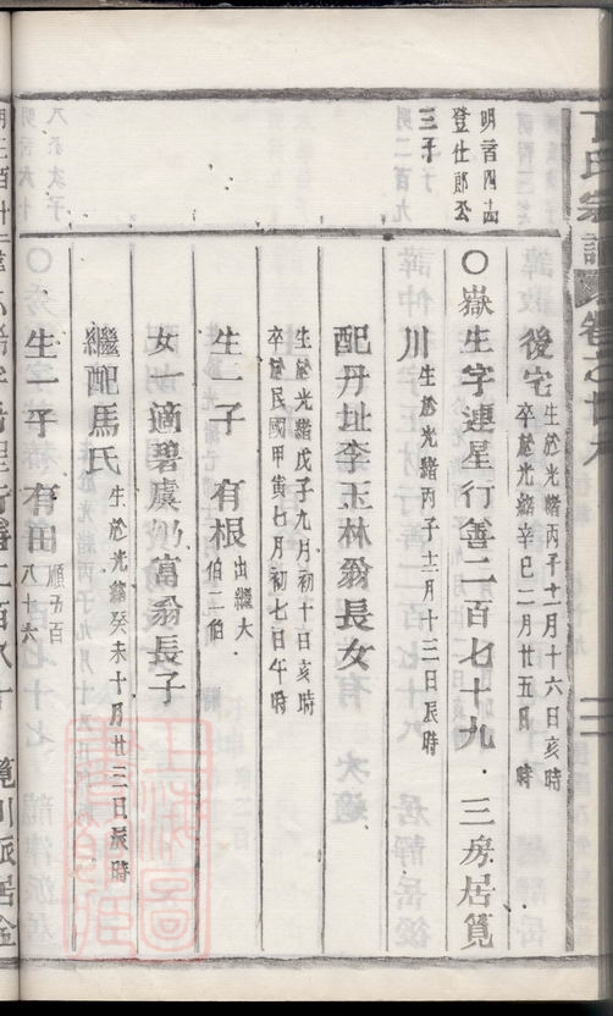 丁氏宗譜 卷之廿九
明言四十四
登仕郎公
三子
後宅
生於光緒丙子十一月十六日亥時
卒於光緒辛巳二月廿五日 時
〇嶽生字連星行善二百七十九三房居筧
川
生於光緒丙子十二月十三日辰時
配丹址李玉林翁長女
生於光緒戊子九月初十日亥時
卒於民國甲寅七月初七日午時
生一子 有根
出繼大
伯二伯
女一適碧虞 富翁長子
繼配馬氏
生於光緒癸未十月廿三日辰時
生一子 有田
順五百
八十六
筧川派居金